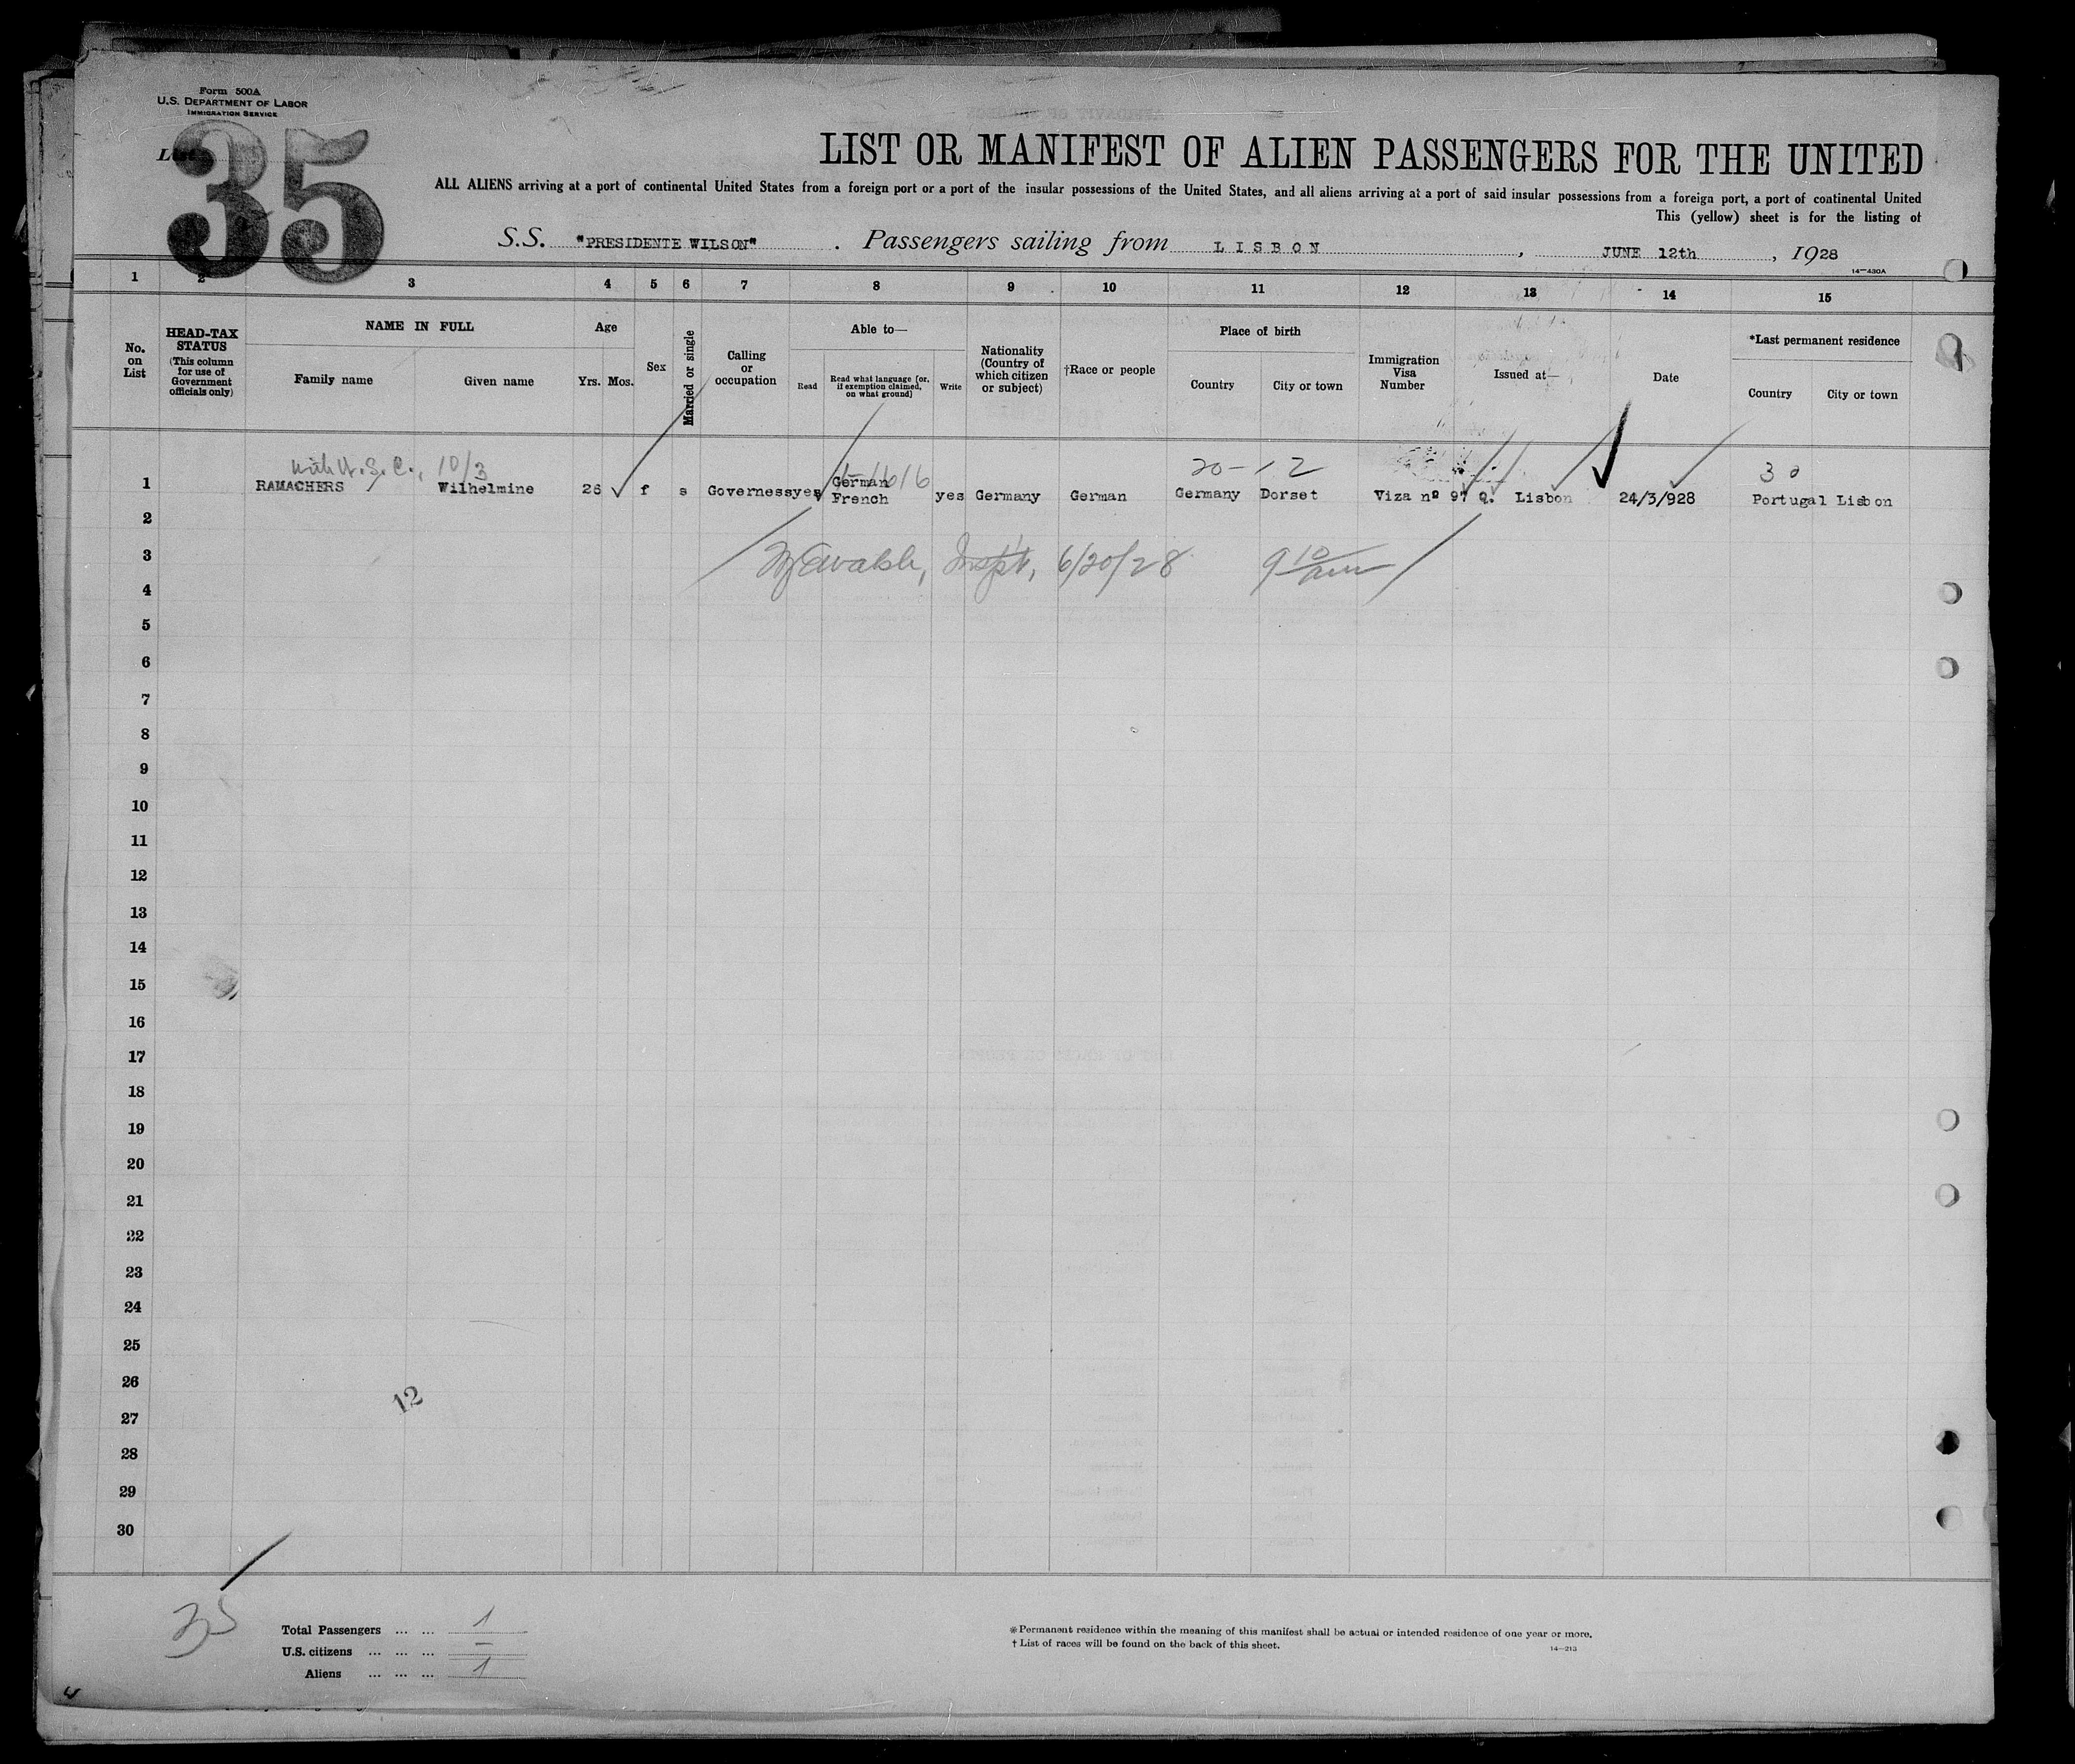 Form 500A
U.S. DEPARTMENT OF LABOR
IMMIGRATION SERVICE
List 35
LIST OR MANIFEST OF ALIEN PASSENGERS FOR THE UNITED
ALL ALIENS arriving at a port of continental United States from a foreign port or a port of the insular possessions of the United States, and all aliens arriving at a port of said insular possessions from a foreign port, a port of continental United
This (yellow) sheet is for the listing of
S.S. "PRESIDENTE WILSON" . Passengers sailing from LISBON , JUNE 12th , 1928
14—430A
1 2 3 4 5 6 7 8 9 10 11 12 13 14 15
No. on List
HEAD-TAX STATUS (This column for use of Government officials only)
NAME IN FULL
Family name Given name
Age
Yrs. Mos.
Sex
Married or single
Calling or occupation
Able to—
Read
Read what language [or, if exemption claimed, on what ground]
Write
Nationality (Country of which citizen or subject)
†Race or people
Place of birth
Country City or town
Immigration Visa Number
Issued at—
Date
*Last permanent residence
Country City or town
10/3 20-12 30
1 RAMACHERS Wilhelmine 26 f s Governess yes German French yes Germany German Germany Dorset Viza nº 97 Q. Lisbon 24/3/928 Portugal Lisbon
2
3 Inspt, 6/20/28 9 10/am
4
5
6
7
8
9
10
11
12
13
14
15
16
17
18
19
20
21
22
23
24
25
26
12
27
28
29
30
35
Total Passengers ... ... 1
U.S. citizens ... ... ... —
Aliens ... ... ... 1
* Permanent residence within the meaning of this manifest shall be actual or intended residence of one year or more.
† List of races will be found on the back of this sheet.
14—213